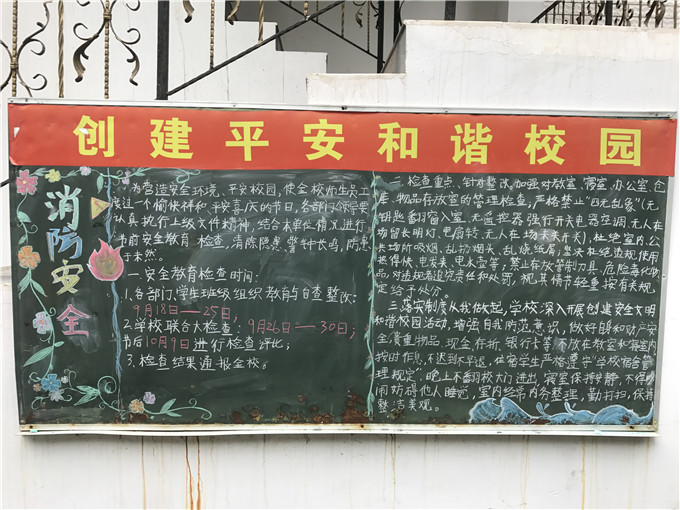 创建平安和谐校园
消防安全
为营造安全环境、平安校园,使全校师生员工
度过一个愉快祥和、平安喜庆的节日,各部门领导要
认真执行上级文件精神,结合本单位情况进行
节前安全教育、检查,清除隐患、警钟长鸣,防患
于未然。
一.安全教育检查时间:
1、各部门、学生班级组织教育与自查整改:
9月18日——25日;
2、学校联合大检查:9月26日——30日;
节后10月9日进行检查评比;
3、检查结果通报全校。
二、检查重点、针对整改,加强对教室、寝室、办公室、仓
库、物品存放室的管理检查,严格禁止“四无乱象”(无
钥匙番扫宿入室、无遥控器强行开关电器空调、无人在
场留长明灯、电扇转、无人在场未关开关),杜绝室内、公
共场所吸烟、乱扔烟头、乱烧纸屑,坚决杜绝违规使用
热得快、电炭来、电水壶等;禁止存放管制刀具、危险毒化物
品,对违规者追究责任和处罚,视其情节轻重按有关规
定给予处分。
三、落实制度从我做起,学校深入开展创建安全文明
和谐校园活动,增强自我防范意识,做好自身和财产安
全(贵重物品、现金存折、银行卡等不放在教室和寝室内)
按时作息,不迟到不早退,住宿学生严格遵守“学校宿舍管
理规定”,晚上不翻校大门进出,寝室保持安静,不得吵
闹妨碍他人睡觉,室内经常内务整理,勤打扫,保持
整洁美观。